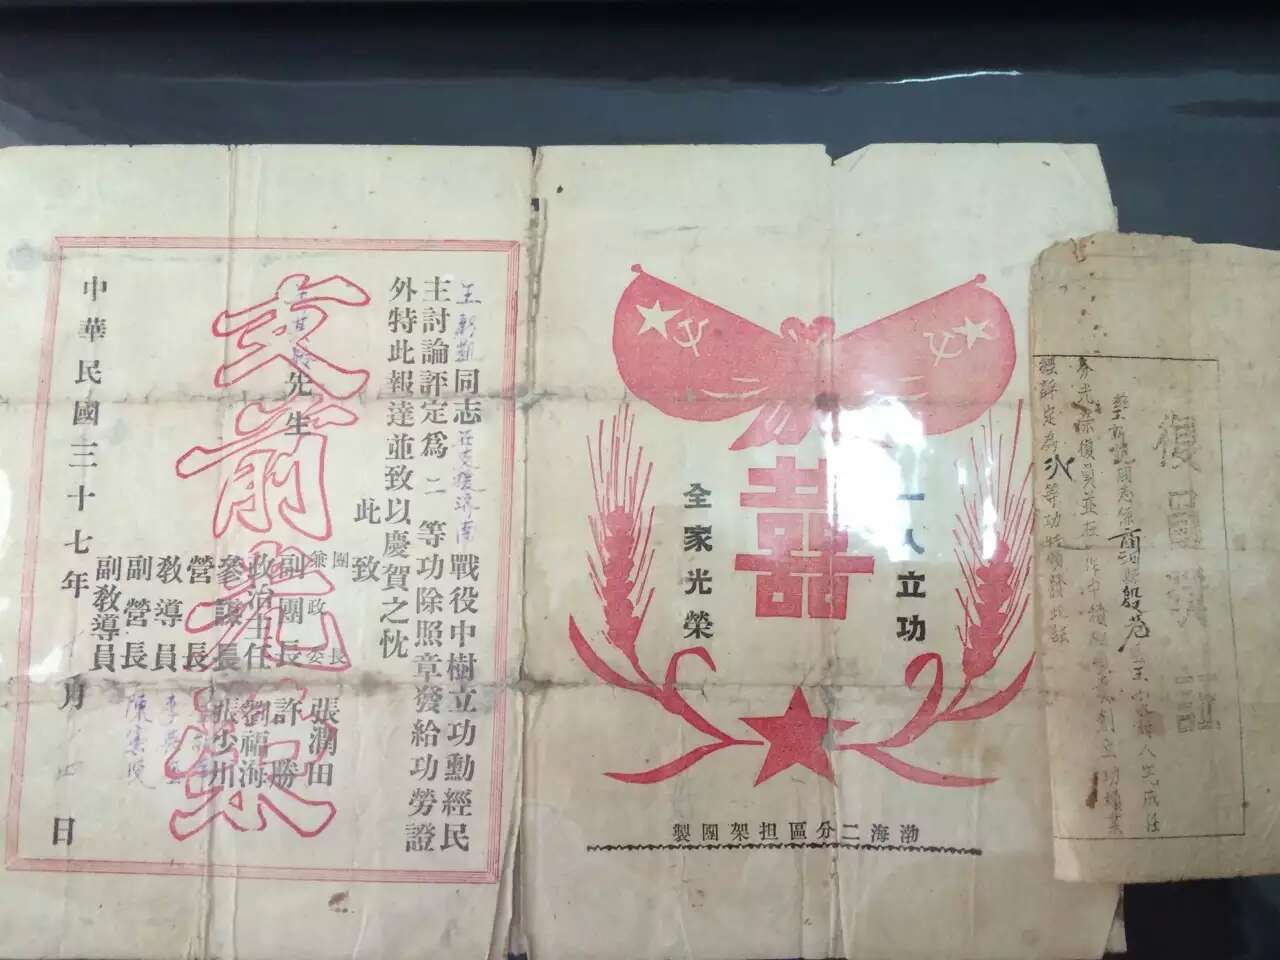 一人立功
全家光榮
渤海二分區担架團製
支前光榮
同志在支援济南戰役中樹立功勳經民
主討論評定爲二等功除照章發給功勞證
外特此報達並致以慶賀之忱
此致
先生
團長
兼政委 張潤田
副團長 許勝
政治主任 劉福海
參謀長 張少川
營長
教導員
副營長
副教導員
中華民國三十七年十月四日
復員
同志係商河縣殷巷
光榮復員並在
經評定為 等功特頒發此證